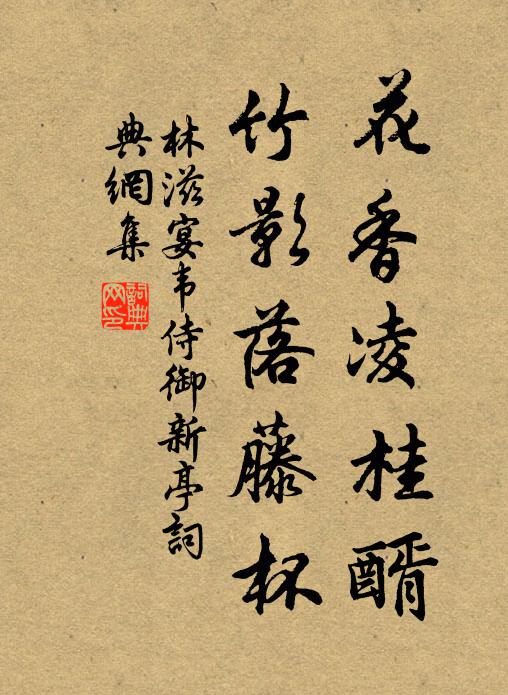 花香凌桂醑
竹影落藤杯
林滋宴韦侍御新亭詞
典網集
詞典网印